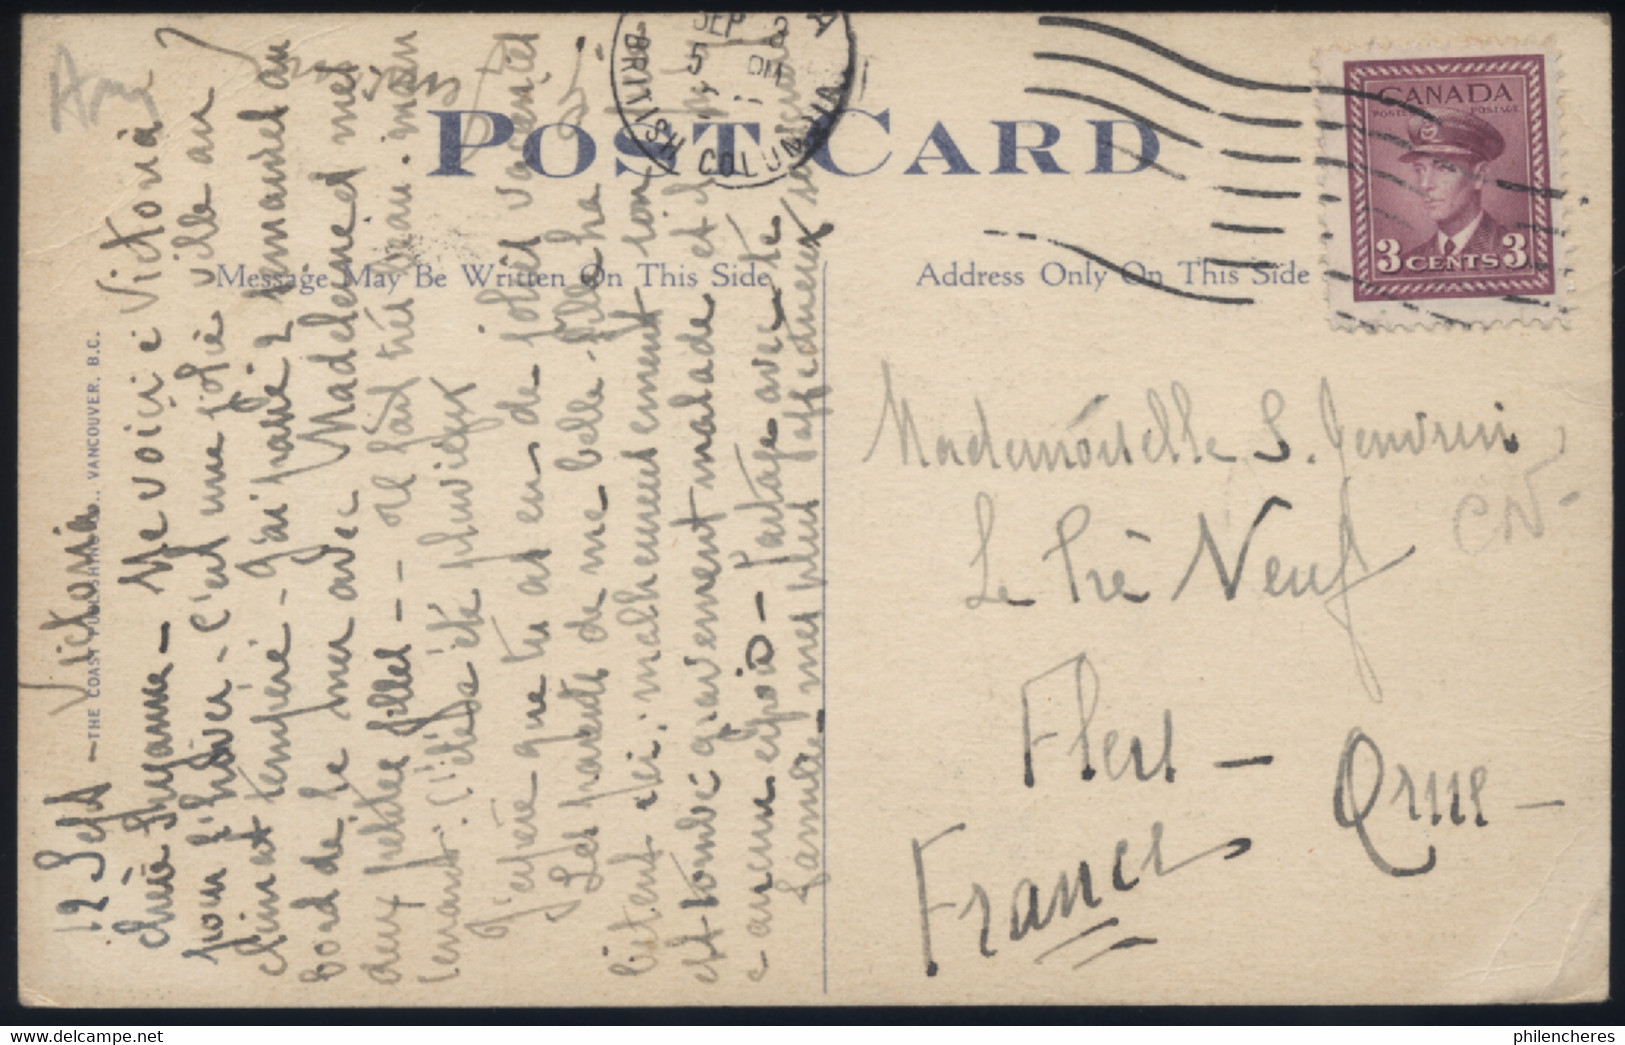 POST CARD
Message May Be Written On This Side
Address Only On This Side
THE COAST PUBLISHING CO., VANCOUVER, B.C.
SEP
5 PM
BRITISH COLUMBIA
CANADA
POSTES POSTAGE
3 CENTS 3
12 Sept - Victoria
chère Suzanne - Me voici à Victoria
pour l'hiver - c'est une jolie ville au
climat tempéré - J'ai passé 2 semaines au
bord de la mer avec Madeleine et mes
deux petites filles - Il fait très beau main
tenant. L'été a été pluvieux
J'espère que tu as eu de jolies vacances
Les parents de ma belle-fille ha
bitent ici; malheureusement son père
est tombé gravement malade et il n'y a
aucun espoir - Partage avec ta
famille mes plus affectueux
Mademoiselle S. Gendrin
Le Pré Neuf
Flers - Orne -
France
philencheres